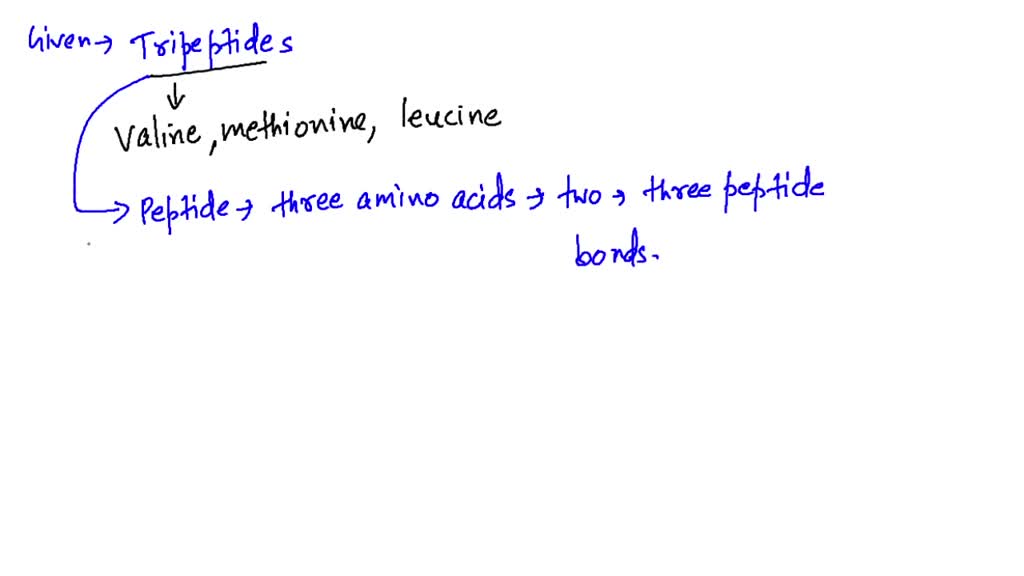 Given → Tripeptides
↓
Valine, methionine, leucine
→ Peptide → three amino acids → two → three peptide
bonds.